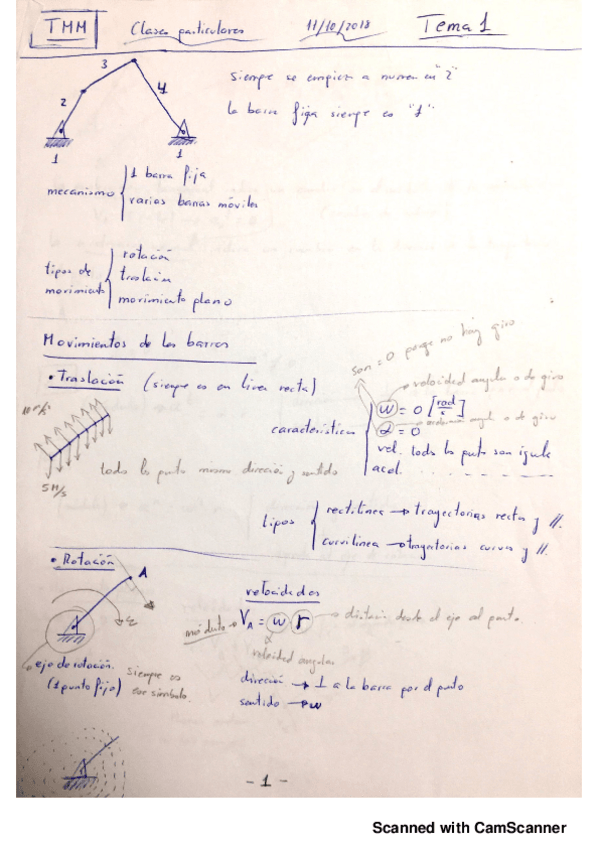 TMM Clases particulares 11/10/2018 Tema 1
3
2
4
1
1
siempre se empieza a numerar en "2"
la barra fija siempre es "1"
mecanismo
1 barra fija
varias barras móviles
tipos de movimiento
rotación
traslación
movimiento plano
Movimientos de las barras
• Traslación (siempre es en línea recta)
son = 0 porque no hay giro
velocidad angular o de giro
w = 0 [rad/s]
α = 0
características
vel. todos los puntos son iguales
acel.
5 m/s
todos los puntos misma dirección y sentido
tipos
rectilínea → trayectorias rectas y //.
curvilínea → trayectorias curvas y //.
• Rotación
A
velocidades
módulo → V_A = w · r → distancia desde el eje al punto.
velocidad angular
eje de rotación.
(1 punto fijo)
siempre es ese símbolo.
dirección → ⊥ a la barra por el punto
sentido → w
- 1 -
Scanned with CamScanner